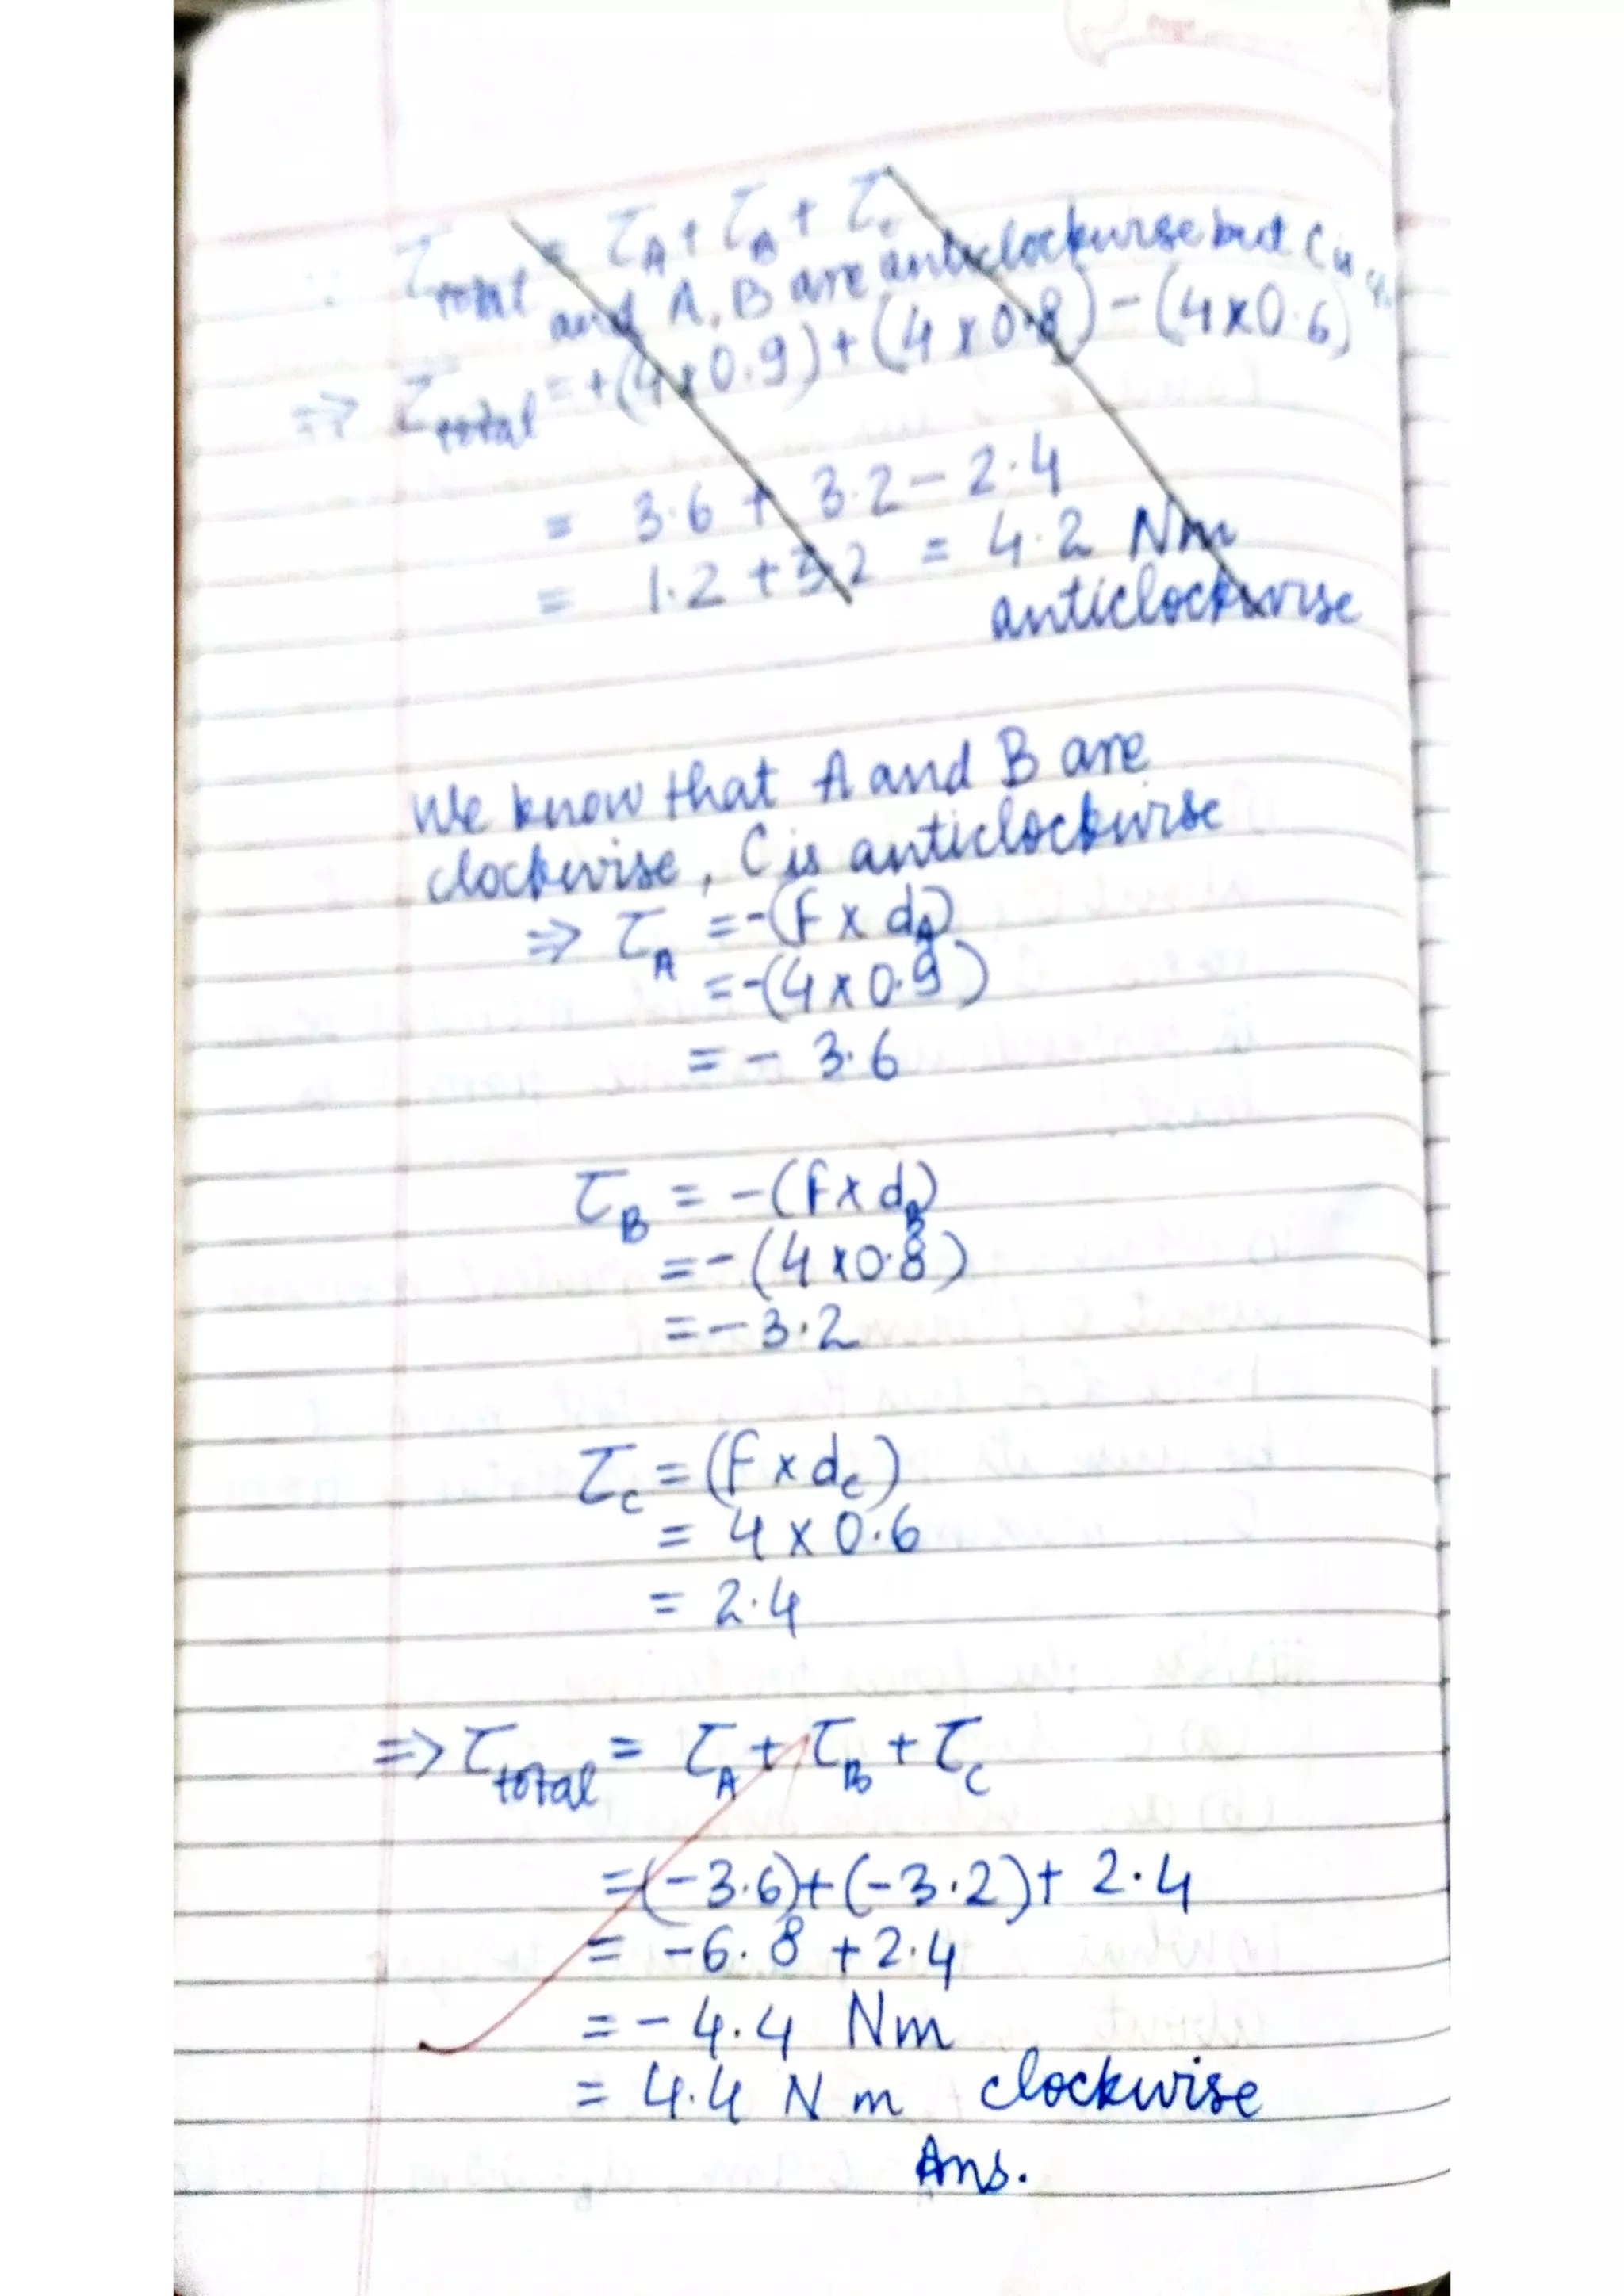 ∵ τtotal = τA + τB + τc
and A, B are anticlockwise but C is
⇒ τtotal = +(4×0.9)+(4×0.8)-(4×0.6)
= 3.6 + 3.2 - 2.4
= 1.2 + 3.2 = 4.2 Nm
anticlockwise
We know that A and B are
clockwise, C is anticlockwise
⇒ τA = -(F × dA)
= -(4 × 0.9)
= - 3.6
τB = -(F × dB)
= -(4 × 0.8)
= - 3.2
τc = (F × dc)
= 4 × 0.6
= 2.4
⇒ τtotal = τA + τB + τC
= (-3.6)+(-3.2)+ 2.4
= -6.8 + 2.4
= - 4.4 Nm
= 4.4 N m clockwise
Ans.